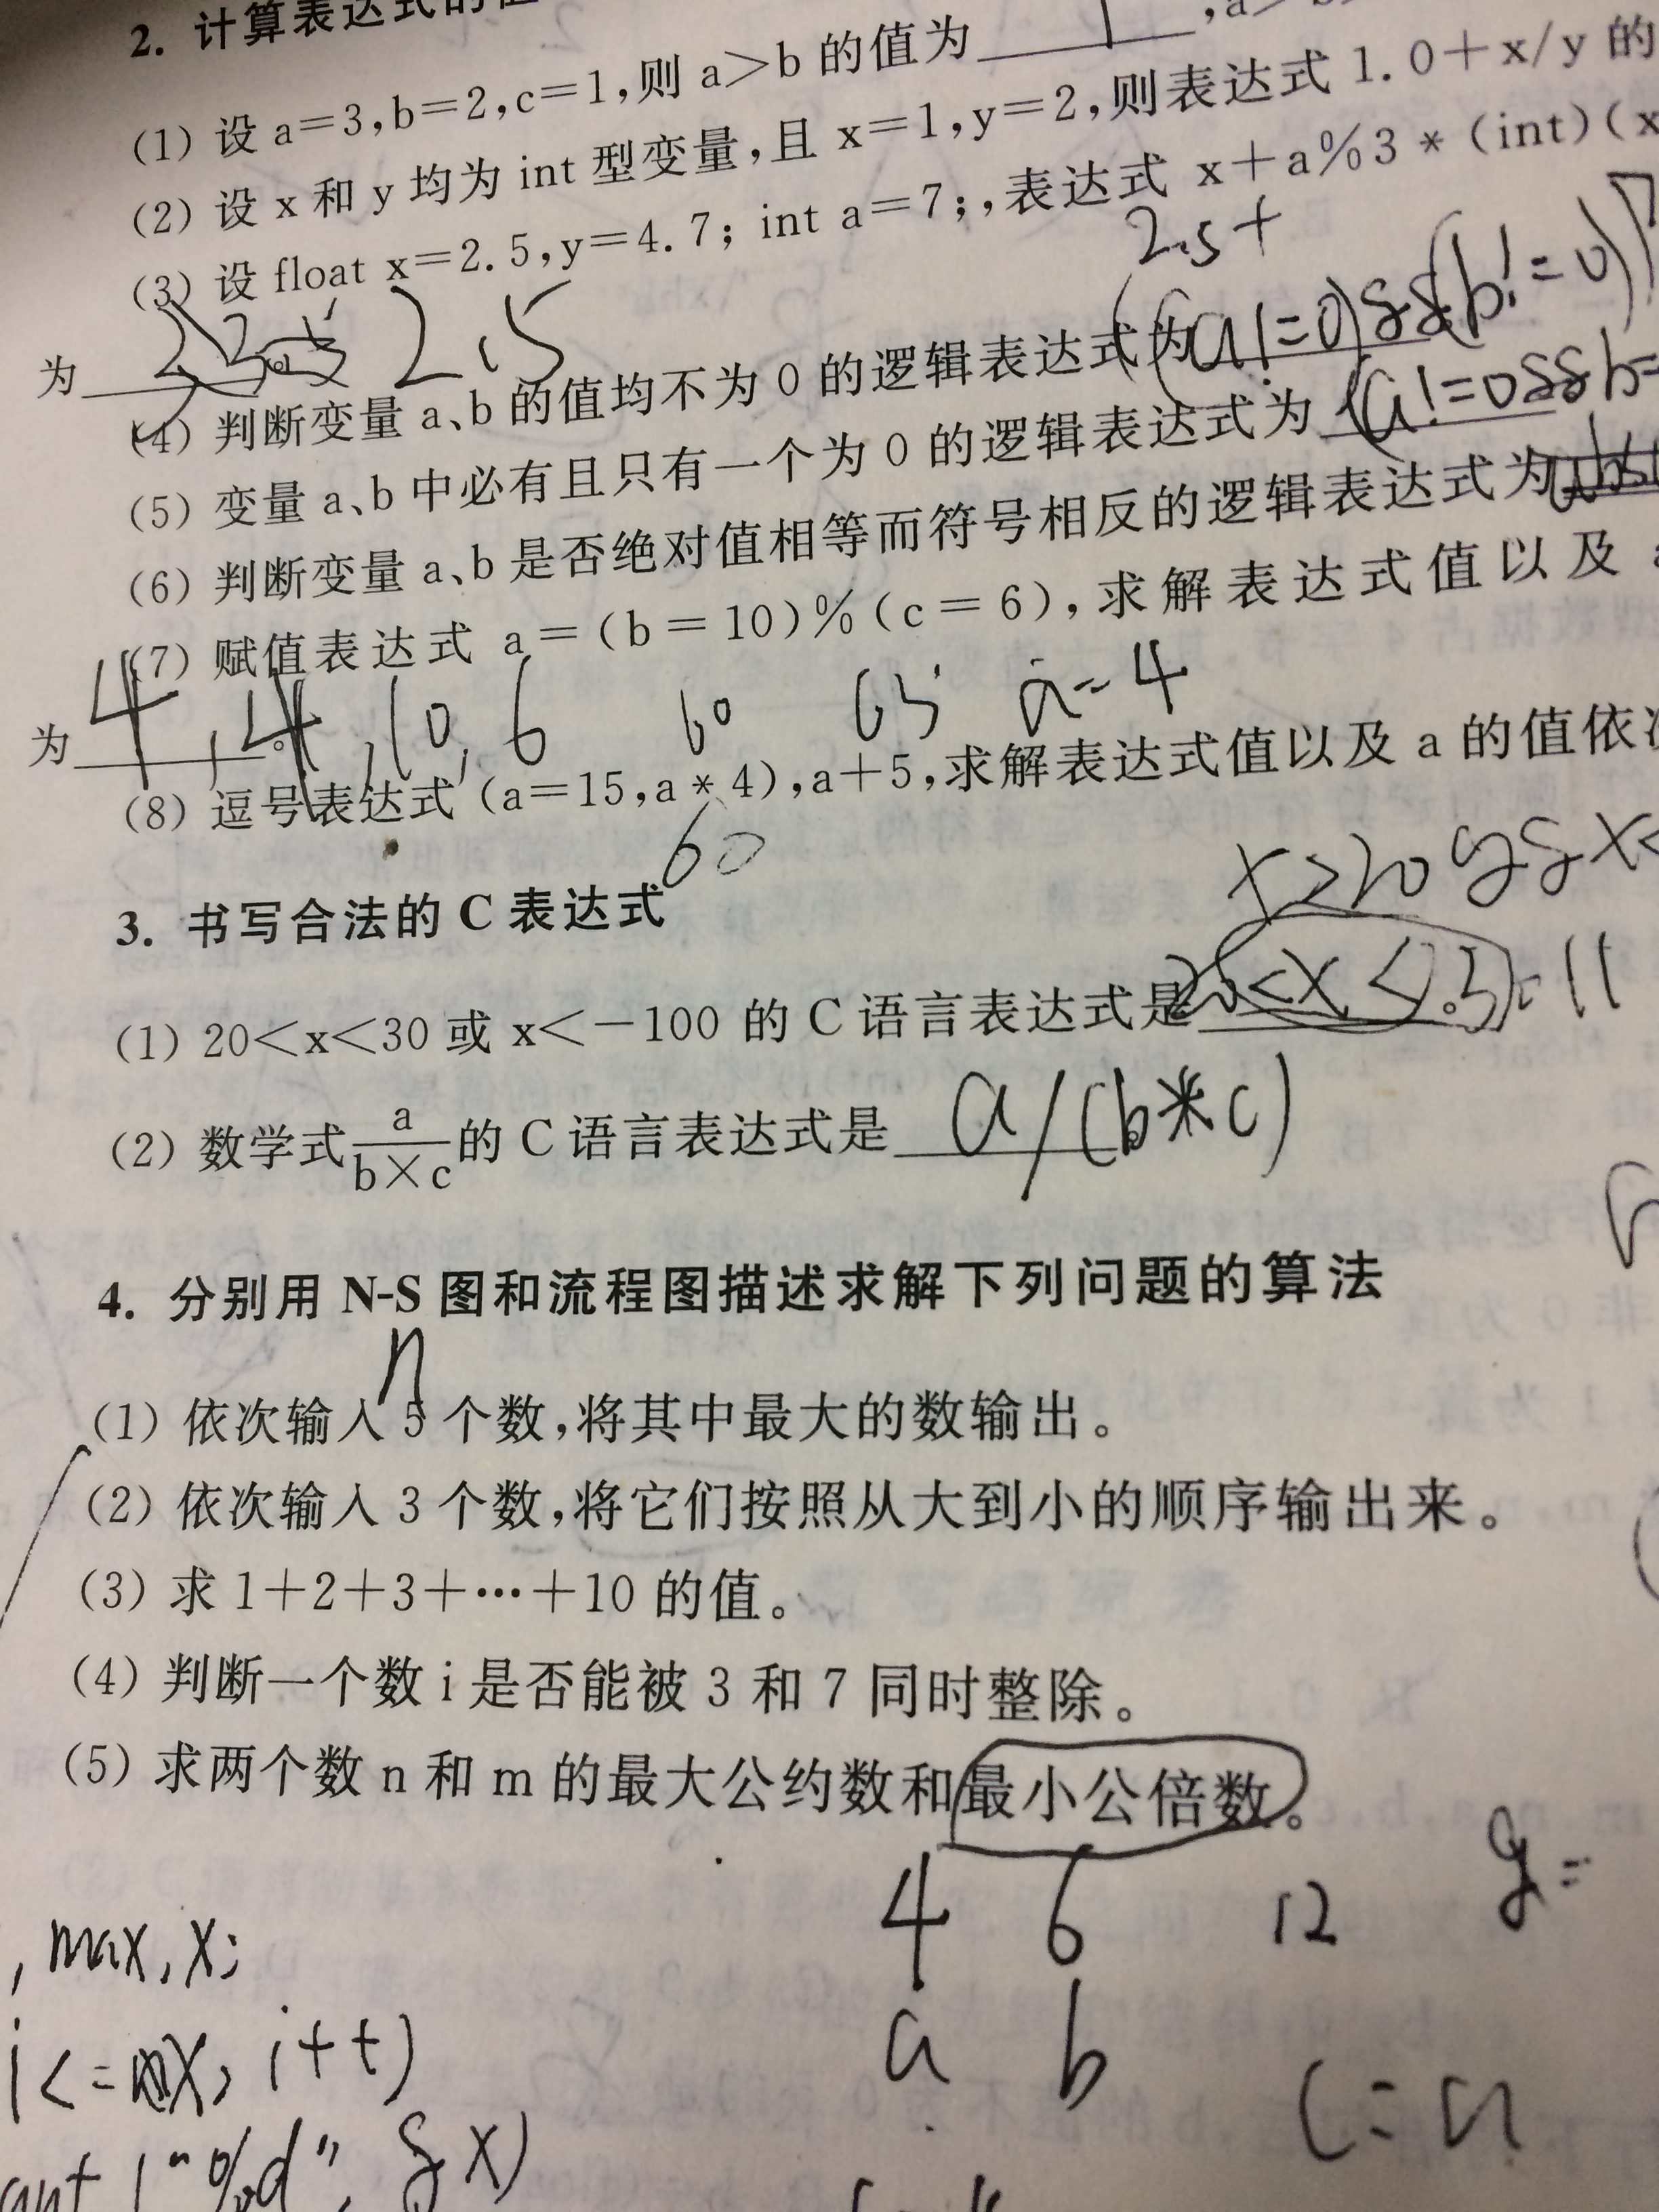 2. 计算表达式的值
(1) 设 a=3,b=2,c=1,则 a>b 的值为 1 ,a>
(2) 设 x 和 y 均为 int 型变量,且 x=1,y=2,则表达式 1.0+x/y 的
(3) 设 float x=2.5,y=4.7; int a=7;,表达式 x+a%3*(int)(x
2.5+
为 2.5
(4) 判断变量 a、b 的值均不为 0 的逻辑表达式为 ((a!=0)&&(b!=0))
(5) 变量 a、b 中必有且只有一个为 0 的逻辑表达式为 (a!=0&&b=
(6) 判断变量 a、b 是否绝对值相等而符号相反的逻辑表达式为
(7) 赋值表达式 a=(b=10)%(c=6),求解表达式值以及
为 4,4,10,6 60 65 a=4
(8) 逗号表达式 (a=15,a*4),a+5,求解表达式值以及 a 的值依
60
3. 书写合法的 C 表达式
x>20 && x<
(1) 20<x<30 或 x<-100 的 C 语言表达式是
(2) 数学式 a/b×c 的 C 语言表达式是 a/(b*c)
4. 分别用 N-S 图和流程图描述求解下列问题的算法
n
(1) 依次输入 5 个数,将其中最大的数输出。
(2) 依次输入 3 个数,将它们按照从大到小的顺序输出来。
(3) 求 1+2+3+…+10 的值。
(4) 判断一个数 i 是否能被 3 和 7 同时整除。
(5) 求两个数 n 和 m 的最大公约数和最小公倍数。
4 6 12 y=
, max, x;
a b
i++)
"%d", &x)